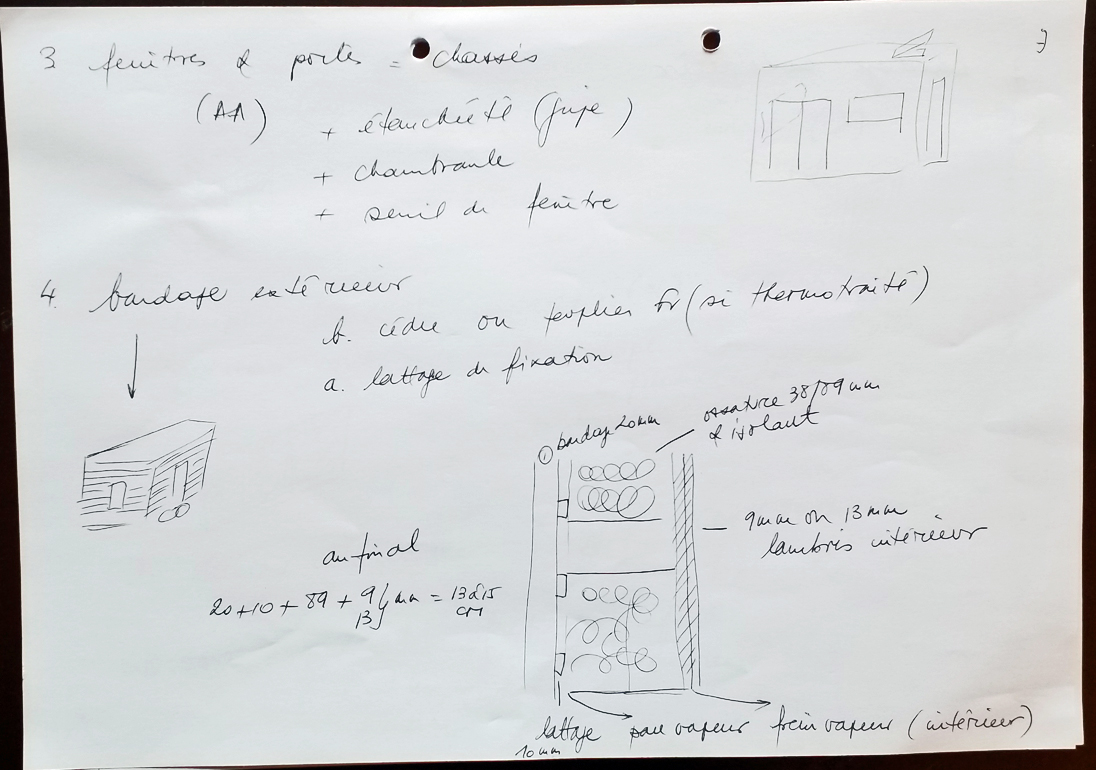 3 fenêtres & portes = chassés
(AA)
+ étanchéité (
)
+ chambranle
+ seuil de fenêtre
4. bardage extérieur
b. cèdre ou peuplier Fr (si thermotraité)
a. lattage de fixation
① bardage 20mm
ossature 38/89 mm
& isolant
9mm ou 13mm
lambris intérieur
au final
20+10+89+9/13 mm = 13 à 15
cm
lattage
10mm
pare vapeur
frein vapeur (intérieur)